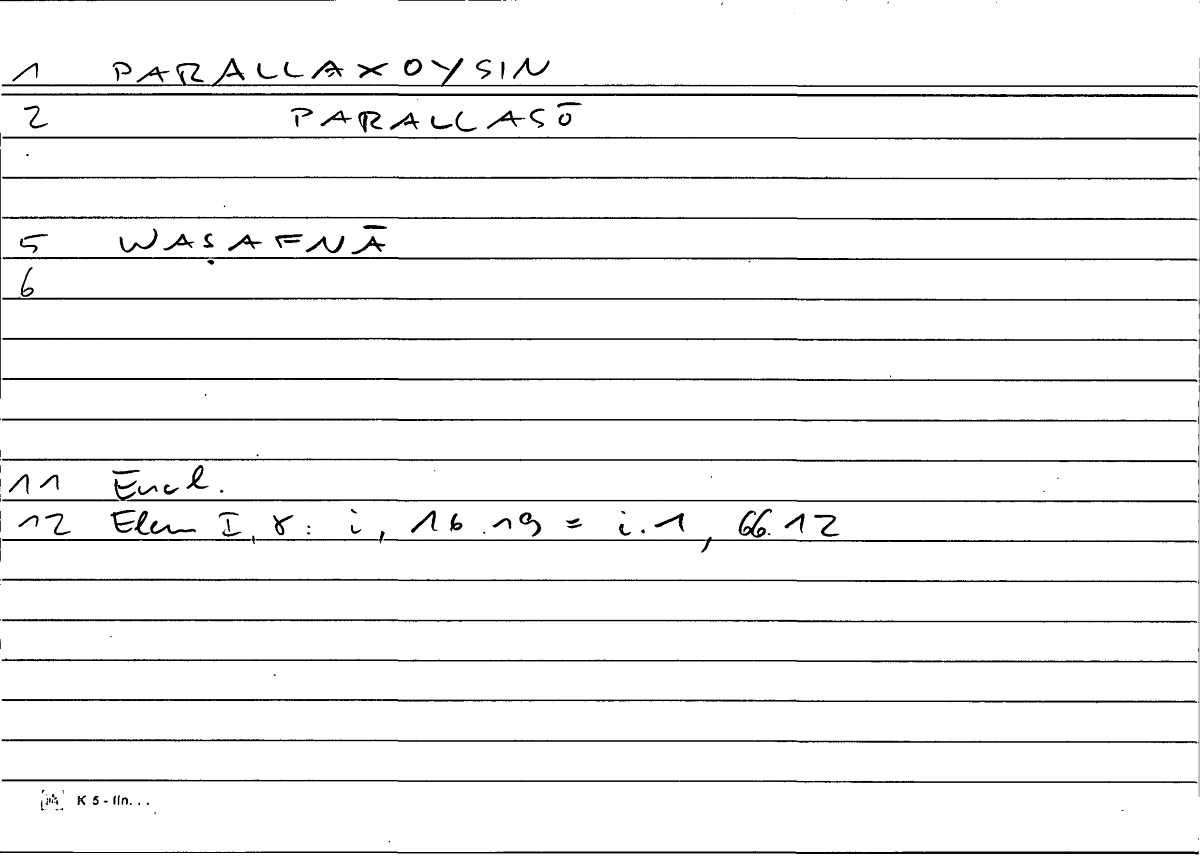 1 PARALLAXOYSIN
2 PARALLASŌ
5 WAṢAFNĀ
6
11 Eucl.
12 Elem I, γ: i, 16.19 = i.1, 66.12
K 5 -